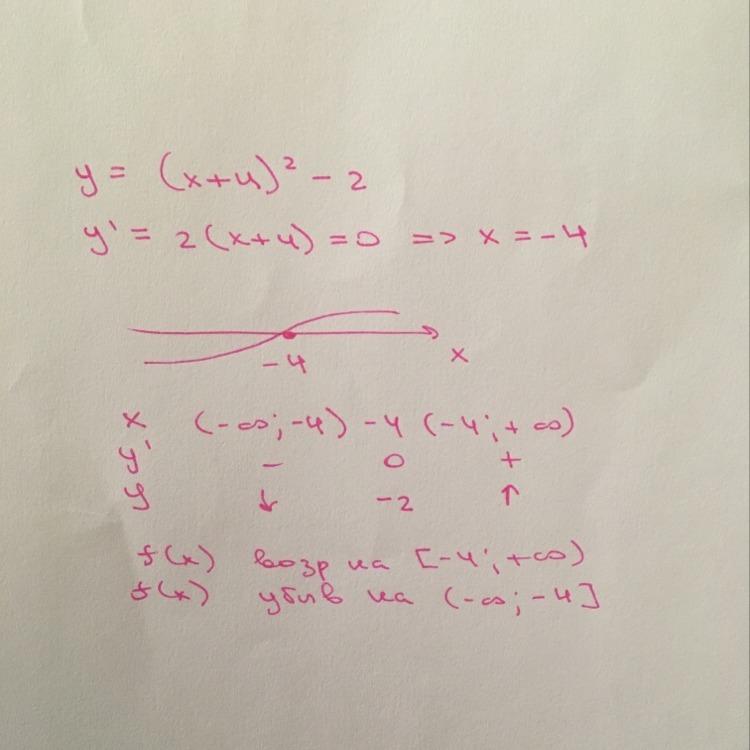 y = (x+4)² - 2
y' = 2(x+4) = 0 => x = -4
-4 x
x (-∞; -4) -4 (-4; +∞)
y' - 0 +
y ↓ -2 ↑
f(x) возр на [-4; +∞)
f(x) убыв на (-∞; -4]